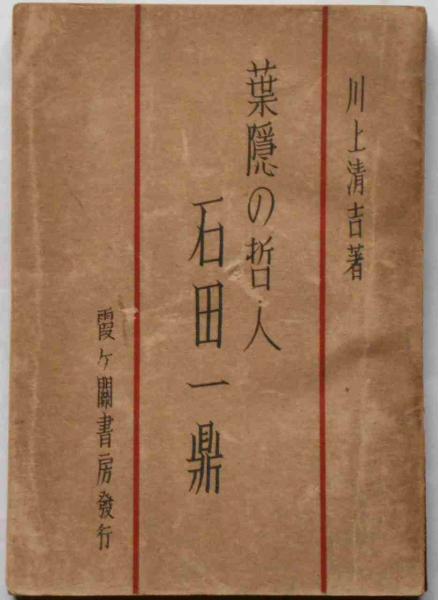 川上清吉著
葉隠の哲人
石田一鼎
霞ヶ關書房發行